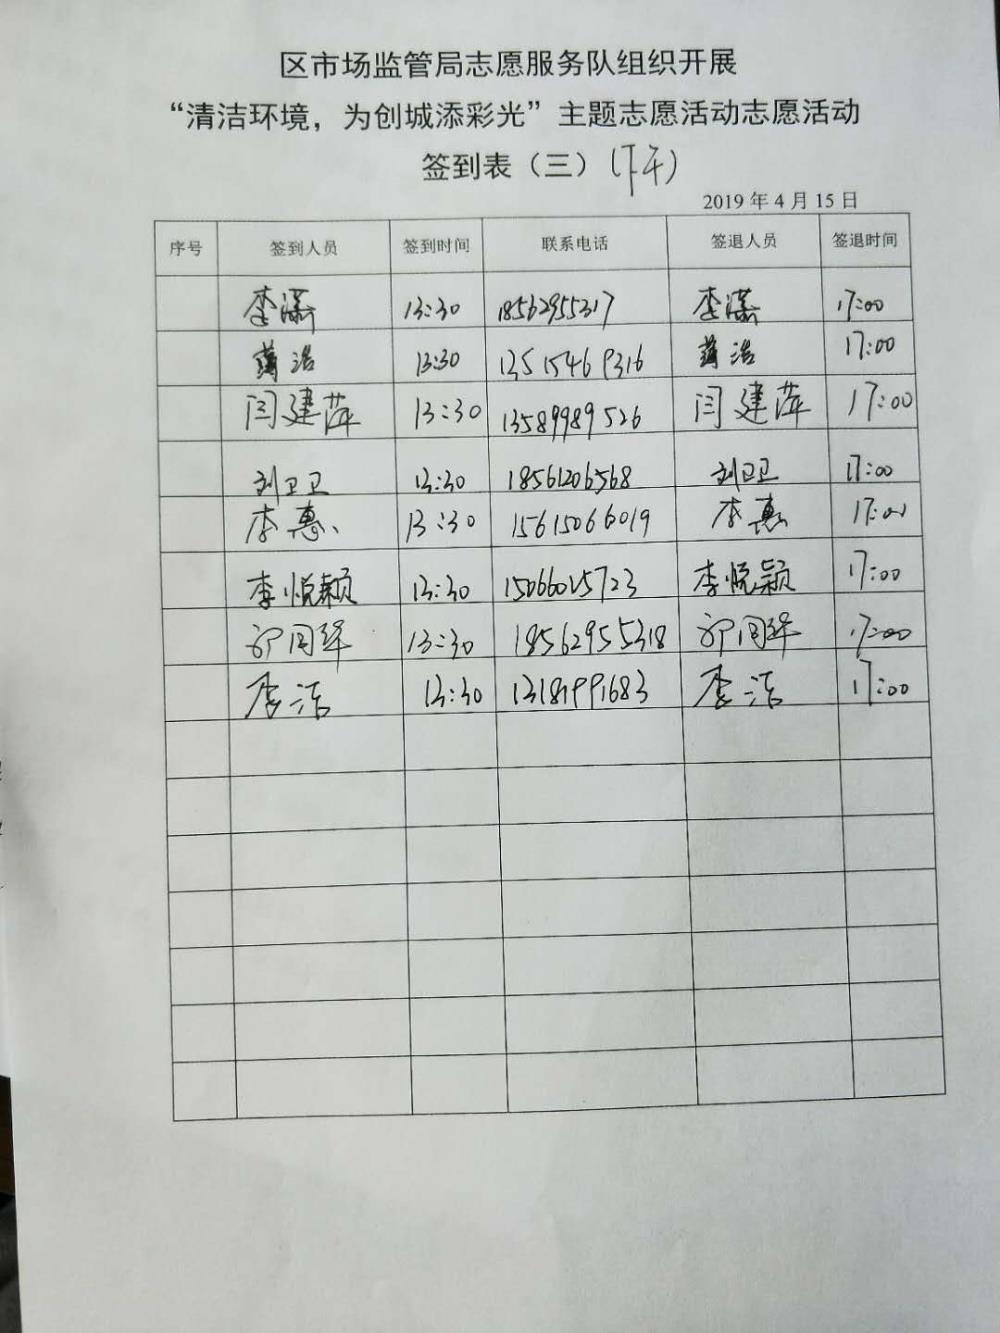 区市场监管局志愿服务队组织开展
“清洁环境，为创城添彩光”主题志愿活动志愿活动
签到表（三）(下午)
2019 年 4 月 15 日
序号 签到人员 签到时间 联系电话 签退人员 签退时间
李潇 13:30 18562955317 李潇 17:00
蔺浩 13:30 13515469316 蔺浩 17:00
闫建萍 13:30 13589989526 闫建萍 17:00
刘卫卫 13:30 18561206568 刘卫卫 17:00
李惠 13:30 15615066019 李惠 17:00
李悦颖 13:30 15066015723 李悦颖 17:00
13:30 18562955318 17:00
李洁 13:30 13181991683 李洁 17:00